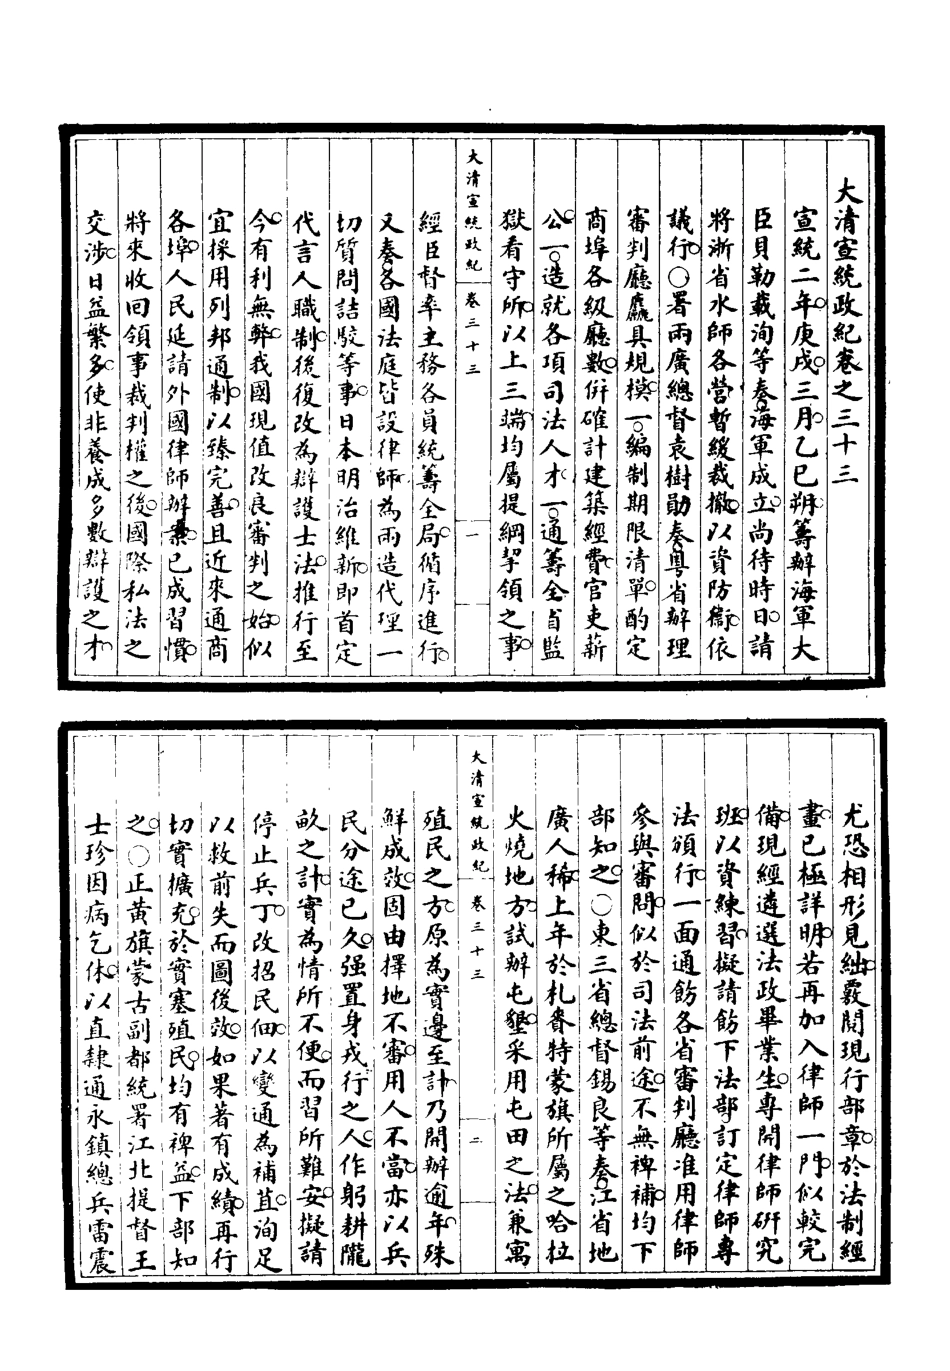 大清宣統政紀卷之三十三
宣統二年庚戌三月乙巳朔籌辦海軍大
臣貝勒載洵等奏海軍成立尚待時日請
將浙省水師各營暫緩裁撤以資防衞依
議行〇署兩廣總督袁樹勛奏粵省辦理
審判廳麤具規模一編制期限清單酌定
商埠各級廳數併確計建築經費官吏薪
公一造就各項司法人才一通籌全省監
獄看守所以上三端均屬提綱挈領之事
大清宣統政紀 卷三十三 一
經臣督率主務各員統籌全局循序進行
又奏各國法庭皆設律師為兩造代理一
切質問詰駁等事日本明治維新即首定
代言人職制後復改為辯護士法推行至
今有利無弊我國現值改良審判之始似
宜採用列邦通制以臻完善且近來通商
各埠人民延請外國律師辦案已成習慣
將來收回領事裁判權之後國際私法之
交涉日益繁多使非養成多數辯護之才
尤恐相形見絀覈閱現行部章於法制經
畫已極詳明若再加入律師一門似較完
備現經遴選法政畢業生專開律師研究
班以資練習擬請飭下法部訂定律師專
法頒行一面通飭各省審判廳准用律師
參與審問似於司法前途不無裨補均下
部知之〇東三省總督錫良等奏江省地
廣人稀上年於札賚特蒙旗所屬之哈拉
火燒地方試辦屯墾采用屯田之法兼寓
大清宣統政紀 卷三十三 二
殖民之方原為實邊至計乃開辦逾年殊
鮮成效固由擇地不審用人不當亦以兵
民分途已久强置身戎行之人作躬耕隴
畝之計實為情所不便而習所難安擬請
停止兵丁改招民佃以變通為補苴洵足
以救前失而圖後效如果著有成績再行
切實擴充於實塞殖民均有裨益下部知
之〇正黃旗蒙古副都統署江北提督王
士珍因病乞休以直隸通永鎮總兵雷震